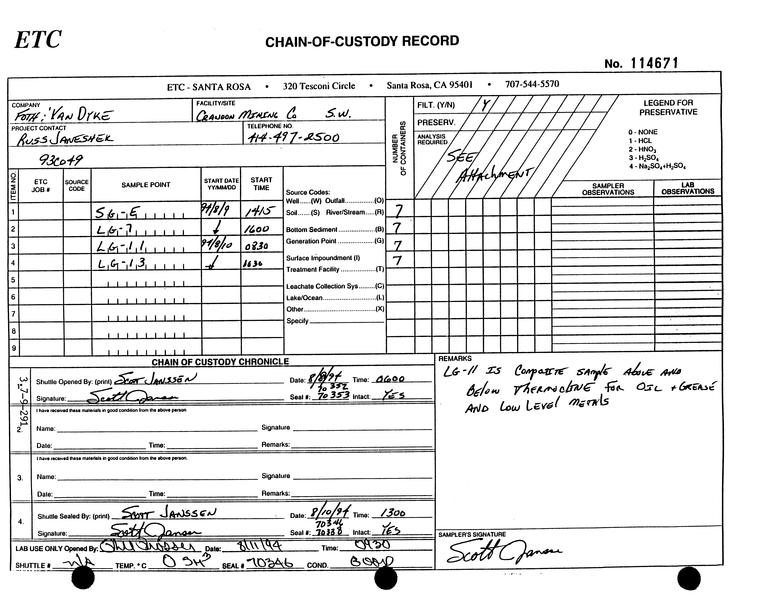 ETC
CHAIN-OF-CUSTODY RECORD
No. 114671
ETC - SANTA ROSA • 320 Tesconi Circle • Santa Rosa, CA 95401 • 707-544-5570
COMPANY
FOTH; VAN DYKE
FACILITY/SITE
CRANDON MINING CO S.W.
PROJECT CONTACT
RUSS JANESHEK
TELEPHONE NO.
414-497-2500
93C049
NUMBER OF CONTAINERS
FILT. (Y/N) Y
PRESERV.
ANALYSIS REQUIRED
SEE
AttAchmENT
LEGEND FOR PRESERVATIVE
0 - NONE
1 - HCL
2 - HNO3
3 - H2SO4
4 - Na2SO4+H2SO4
SAMPLER OBSERVATIONS
LAB OBSERVATIONS
ITEM NO.
ETC JOB #
SOURCE CODE
SAMPLE POINT
START DATE YY/MM/DD
START TIME
1 SG-E 94/8/9 1415 7
2 LG-7 ↓ 1600 7
3 LG-11 94/8/10 0830 7
4 LG-13 ↓ 7
5
6
7
8
9
Source Codes:
Well.....(W) Outfall..........(O)
Soil.....(S) River/Stream..(R)
Bottom Sediment ...............(B)
Generation Point ...............(G)
Surface Impoundment (I)
Treatment Facility ..............(T)
Leachate Collection Sys.....(C)
Lake/Ocean.......................(L)
Other................................(X)
Specify
CHAIN OF CUSTODY CHRONICLE
3-7-9-291
Shuttle Opened By: (print) SCOTT JANSSEN Date: 8/8/94 Time: 0600
70352
Signature: Scott Jansen Seal #: 70353 Intact: YES
2.
I have received these materials in good condition from the above person.
Name: Signature
Date: Time: Remarks:
3.
I have received these materials in good condition from the above person.
Name: Signature
Date: Time: Remarks:
4.
Shuttle Sealed By: (print) SCOTT JANSSEN Date: 8/10/94 Time: 1300
70346
Signature: Scott Jansen Seal #: 70338 Intact: YES
LAB USE ONLY Opened By: Date: 8/11/94 Time: 0930
SHUTTLE # N/A TEMP. °C SEAL # 70346 COND. GOOD
REMARKS
LG-11 IS COMPOSITE SAMPLE ABOVE AND
BELOW THERMOCLINE FOR OIL + GREASE
AND LOW LEVEL METALS
SAMPLER'S SIGNATURE
Scott Jansen